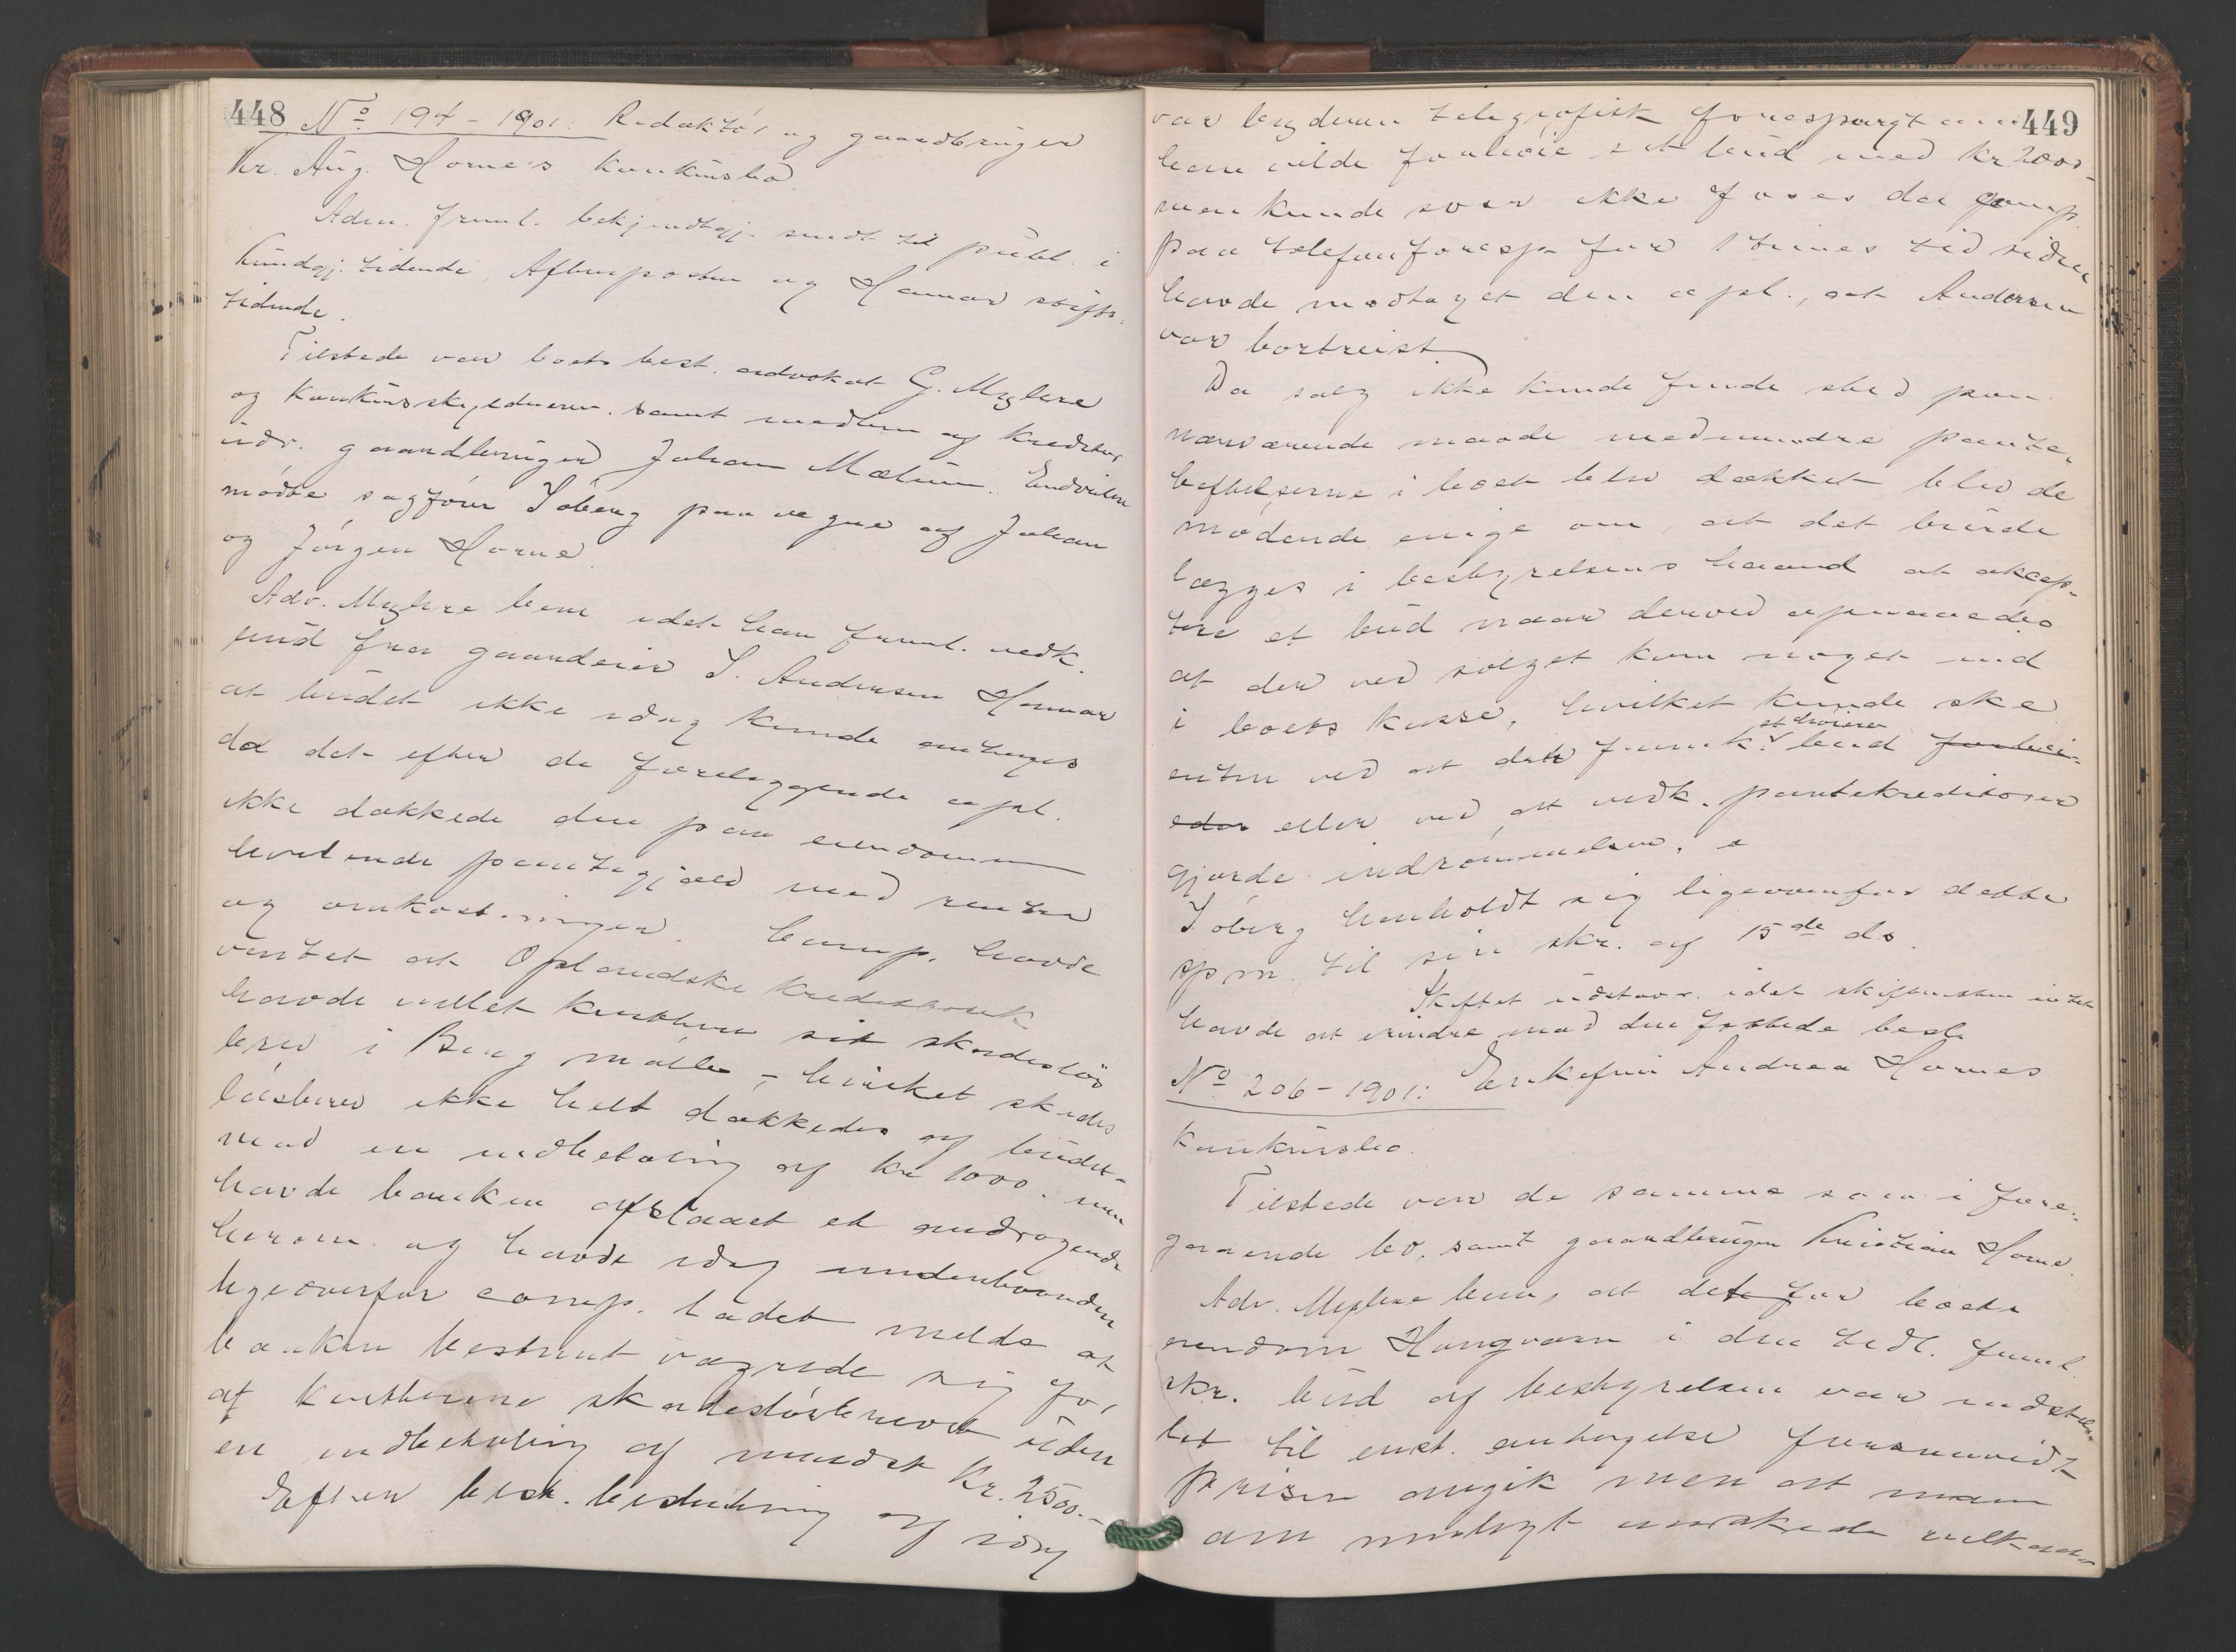 448
No 194 - 1901. Redaktør og gaardbruger
Kr. Aug. Horne's konkursbo.
Adm. freml. bekjendtgj. sendt til publ. i
kundgj. tidende, Aftenposten og Hamar stifts-
tidende.
Tilstede var boets best. advokat G. Myhre
og konkursskyldneren. samt medlem af kreditor
udv. gaardbruger Johan Mælum. Endvidere
mødte sagfører Soberg paa vegne af Johan
og Jørgen Horne.
Adv. Myhre bem. idet han freml. vedk.
bud fra gaardeier S. Andersen Hamar
at budet ikke idag kunde antages
da det efter de foreliggende opl.
ikke dækkede den paa eiendommen
hvilende pantegjæld med renter
og omkostninger. Comp. havde
ventet at Oplandske Kreditbank
havde villet kvittere sit skadesløs
brev i Berg mølle, - hvilket skades
løsbrev ikke helt dækkedes af budet -
mod en indbetaling af kr 1000. men
havde banken afslaaet et andragende
herom og havde idag underhaanden
ligeoverfor comp. ladet melde at
banken bestemt vægrede sig for
at kvittere skadesløsbrevet uden
en indbetaling af mindst kr. 2500.-
Efter best. beslutning af idag
449
var byderen telegrafisk forespurgt om
han vilde forhøie sit bud med kr 2000-
men kunde svar ikke faaes da comp.
paa telefonforesp. for 1 times tid siden
havde modtaget den opl., at Andersen
var bortreist.
Da salg ikke kunde finde sted paa
nærværende maade medmindre pante-
heftelserne i boet blev dækket blev de
mødende enige om, at det burde
lægges i bestyrelsens haand at aksep-
tere et bud naar derved opnaaedes
at der ved salget kom noget ind
i boets kasse, hvilket kunde ske
enten ved at der fremk. et høiere bud
eller ved at vedk. pantekreditorer
gjorde indrømmelser.
Soberg henholdt sig ligeoverfor dette
spm. til sin skr. af 15de ds.
Skiftet udstaar. idet skifteretten intet
havde at erindre mod den fattede besl.
No 206 - 1901: Enkefru Andrea Hornes
konkursbo.
Tilstede var de samme som i fore-
gaaende bo, samt gaardbruger Kristian Horne.
Adv. Myhre bem, at det for boets
eiendom Hongvarn i den tidl. freml.
skr. bud af bestyrelsen var indstil-
let til enst. antagelse forsaavidt
prisen angik men at man
om muligt ønskede vilkaar